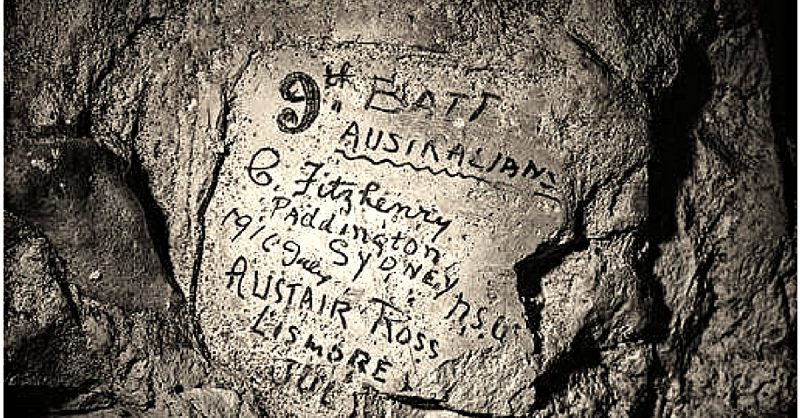 9th BATT
AUSTRALIANS
C. Fitzhenry.
PADDINGTON
SYDNEY N.S.W
1916 July
ALISTAIR ROSS
LISMORE
JUL